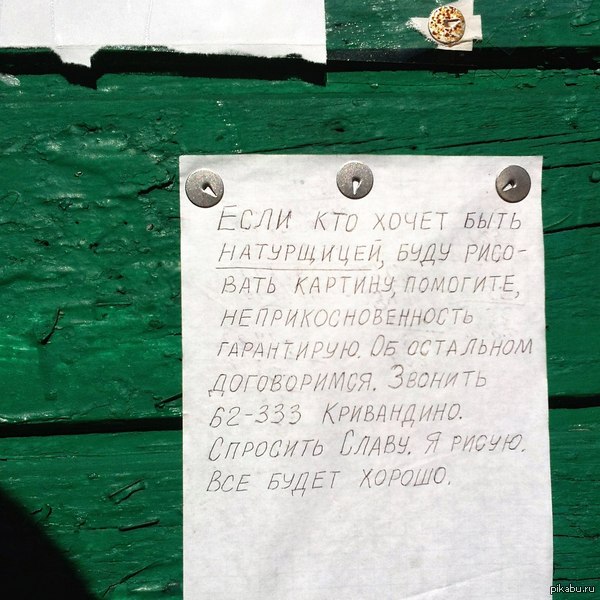 Если кто хочет быть
натурщицей, буду рисо-
вать картину, помогите,
неприкосновенность
гарантирую. Об остальном
договоримся. Звонить
62-333 Кривандино.
Спросить Славу. Я рисую.
Все будет хорошо.
pikabu.ru